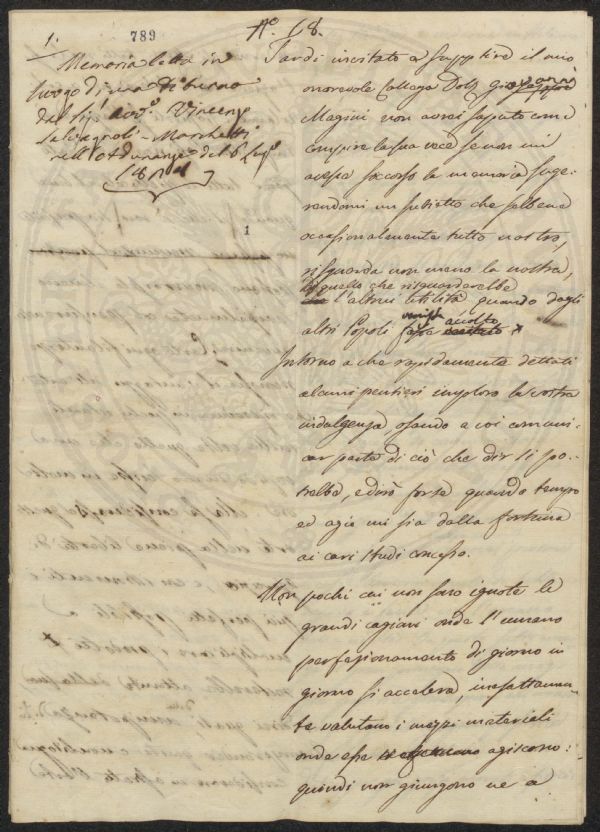 1.
789
N.º 18.
Memoria letta in
luogo di uno di turno
dal Sig.r avv.º Vincenzo
Salvagnoli-Marchetti
nell'Adunanza del 6
1
Tardi invitato a supplire il mio
onorevole Collega Dott. Giovanni
Magini non avrei saputo come
compire la sua vece se non mi
avesse soccorso la memoria suge-
rendomi un subietto che sebbene
occasionalmente tutto nostro,
risguarda non meno la nostra,
quello che risguarderebbe
l'altrui utilità quando dagli
altri Popoli venisse accolto
Intorno a che rapidamente dettati
alcuni pensieri imploro la vostra
indulgenza osando a voi comuni-
car parte di ciò che dir si po-
trebbe, e dirò forse quando tempo
ed agio mi sia dalla fortuna
ai cari studi concesso.
Non pochi cui non sono ignote le
grandi cagioni onde l'umano
perfezionamento di giorno in
giorno si accelera, inesattamen-
te valutano i mezzi materiali
onde esse agiscono:
quindi non giungono nè a